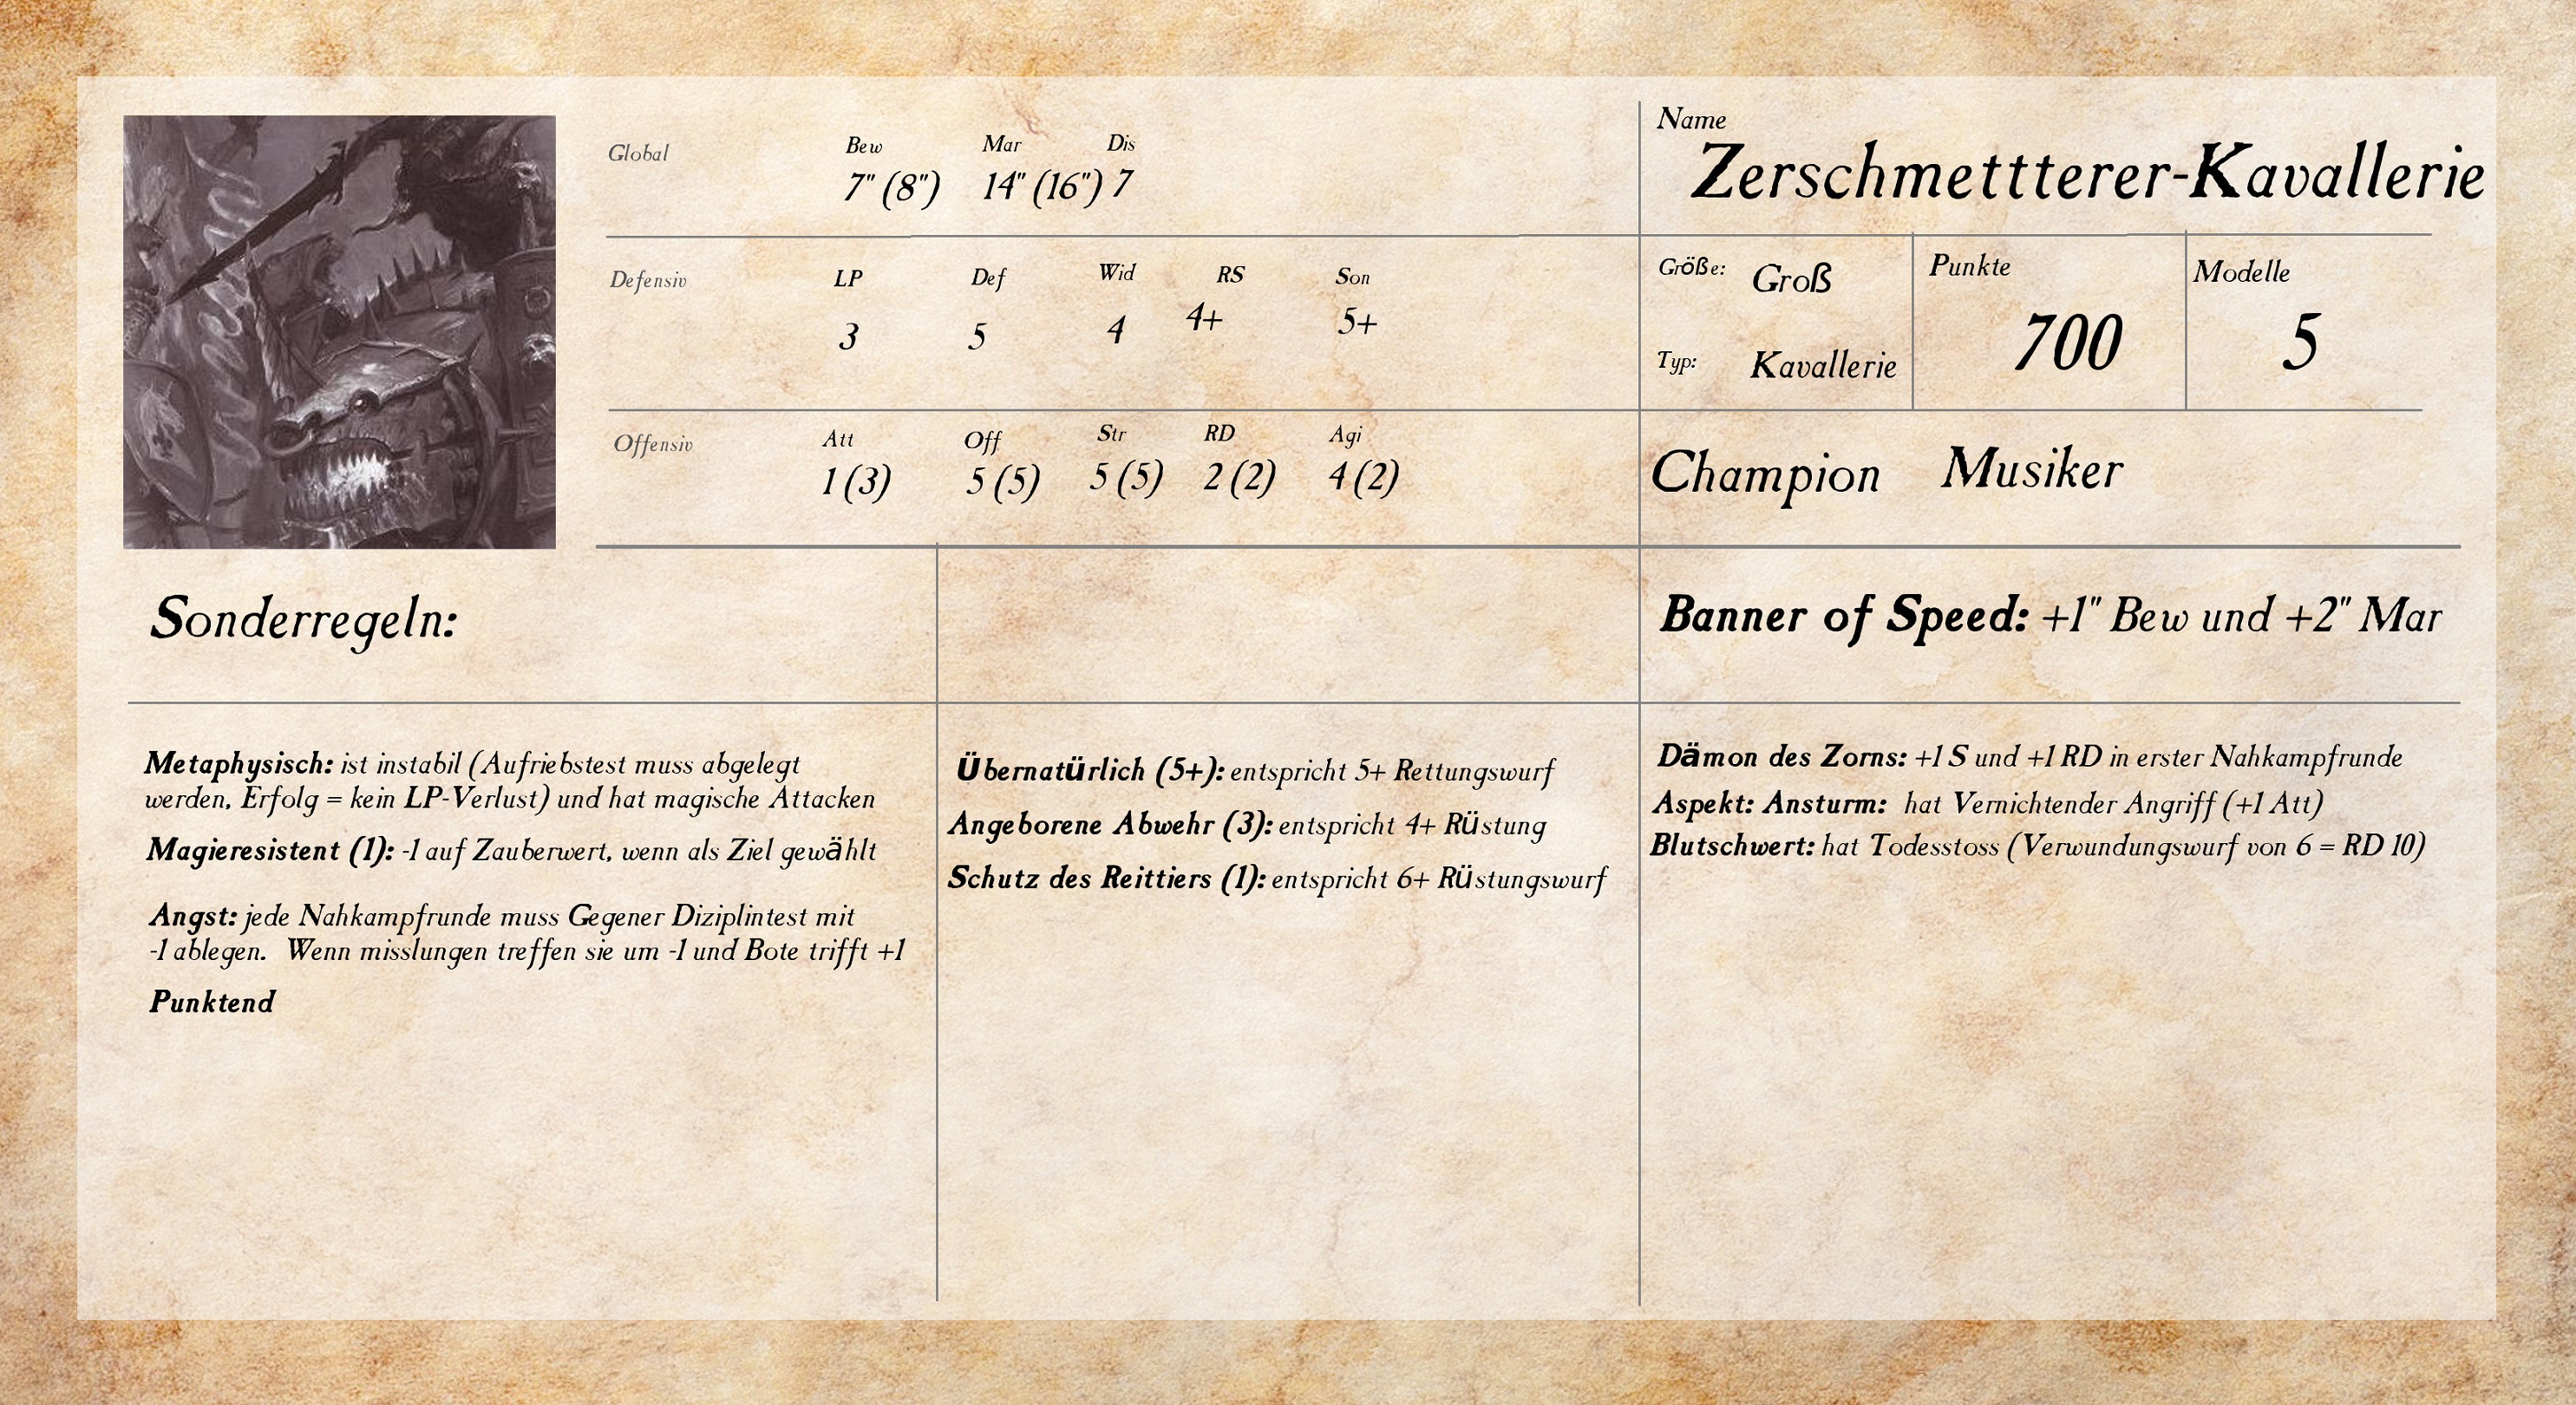 Name
Zerschmettterer-Kavallerie
Global
Bew Mar Dis
7" (8") 14" (16") 7
Defensiv
LP Def Wid RS Son
3 5 4 4+ 5+
Größe: Groß
Typ: Kavallerie
Punkte
700
Modelle
5
Offensiv
Att Off Str RD Agi
1 (3) 5 (5) 5 (5) 2 (2) 4 (2)
Champion Musiker
Sonderregeln:
Banner of Speed: +1" Bew und +2" Mar
Metaphysisch: ist instabil (Aufriebstest muss abgelegt
werden, Erfolg = kein LP-Verlust) und hat magische Attacken
Magieresistent (1): -1 auf Zauberwert, wenn als Ziel gewählt
Angst: jede Nahkampfrunde muss Gegener Diziplintest mit
-1 ablegen. Wenn misslungen treffen sie um -1 und Bote trifft +1
Punktend
Übernatürlich (5+): entspricht 5+ Rettungswurf
Angeborene Abwehr (3): entspricht 4+ Rüstung
Schutz des Reittiers (1): entspricht 6+ Rüstungswurf
Dämon des Zorns: +1 S und +1 RD in erster Nahkampfrunde
Aspekt: Ansturm: hat Vernichtender Angriff (+1 Att)
Blutschwert: hat Todesstoss (Verwundungswurf von 6 = RD 10)